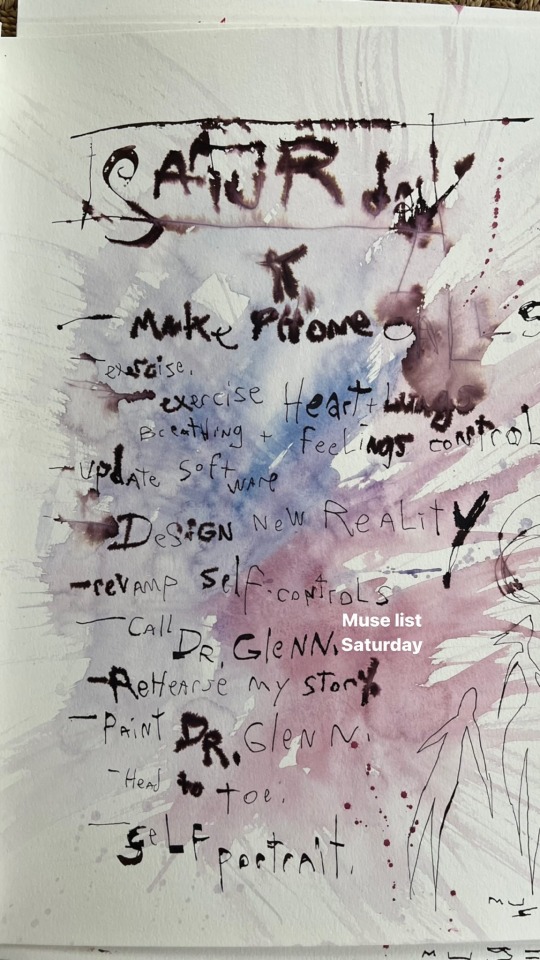 SATURDAY
- Make PHONE
- exercise.
- exercise Heart + Lungs
Breathing + feelings control
- update software
- DESIGN NEW REALITY
- revamp self-controls
- CALL DR. GLENN.
Muse list
Saturday
- ReHearse my story
- PAINT DR. GLENN.
- Head to toe.
- SELF portrait.
MUS